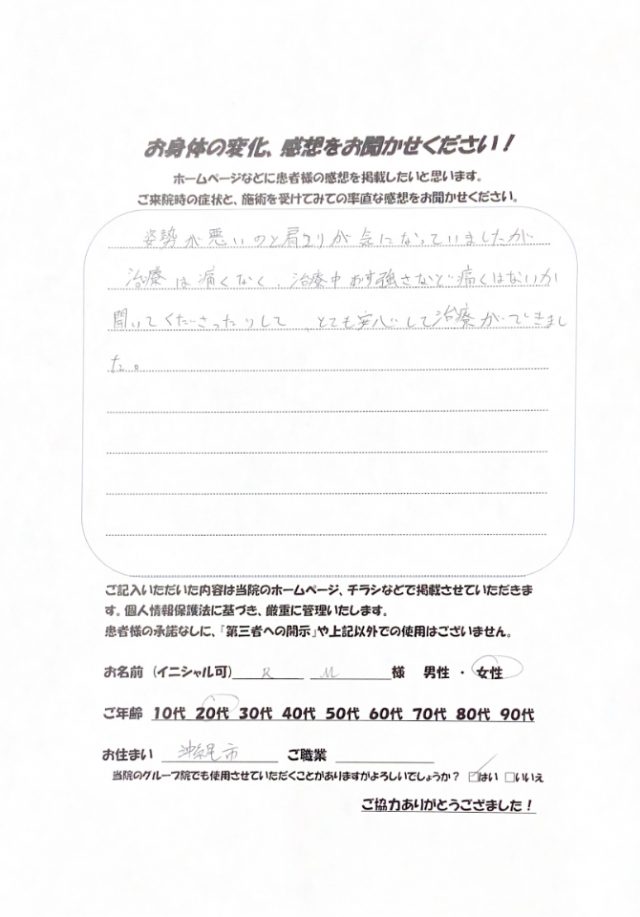 お身体の変化、感想をお聞かせください！
ホームページなどに患者様の感想を掲載したいと思います。
ご来院時の症状と、施術を受けてみての率直な感想をお聞かせください。
姿勢が悪いのと肩コリが気になっていましたが
治療は痛くなく、治療中おす強さなど痛くはないか
聞いてくださったりして、とても安心して治療ができまし
た。
ご記入いただいた内容は当院のホームページ、チラシなどで掲載させていただきま
す。個人情報保護法に基づき、厳重に管理いたします。
患者様の承諾なしに、「第三者への開示」や上記以外での使用はございません。
お名前（イニシャル可） R M 様 男性・女性
ご年齢 10代 20代 30代 40代 50代 60代 70代 80代 90代
お住まい 沖縄市 ご職業
当院のグループ院でも使用させていただくことがありますがよろしいでしょうか？ ☑はい □いいえ
ご協力ありがとうござました！